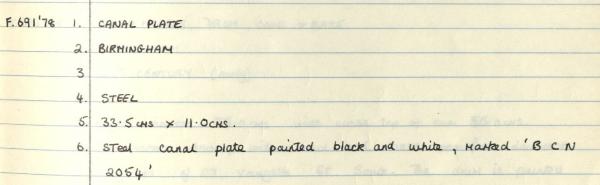 F.691'78 1. CANAL PLATE
2. BIRMINGHAM
3
4. STEEL
5. 33.5cms x 11.0cms.
6. Steel canal plate painted black and white, marked 'B C N
2054'